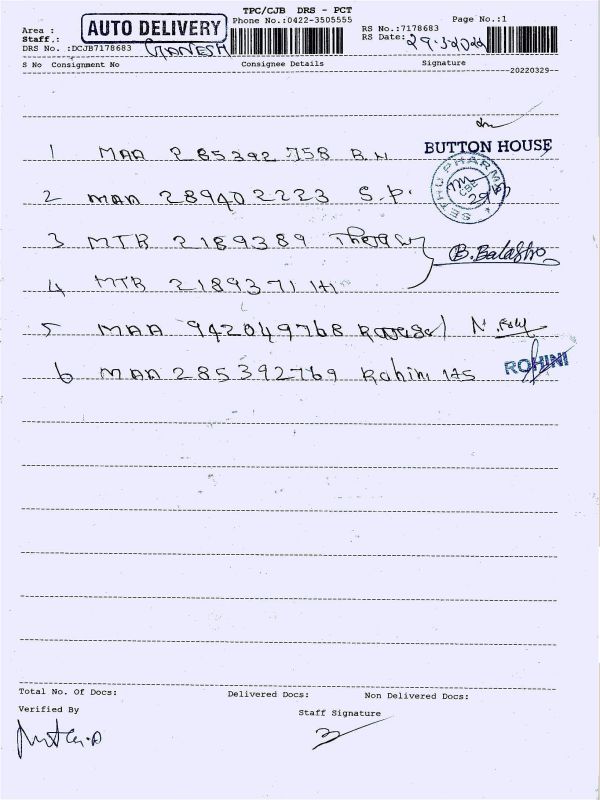 TPC/CJB DRS - PCT
AUTO DELIVERY Phone No.:0422-3505555 Page No.:1
Area : RS No.:7178683
Staff.: GANESH RS Date: 29.3.2022
DRS No. :DCJB7178683
S No Consignment No Consignee Details Signature
20220329
1 MAA 285392758 B.N BUTTON HOUSE
2 MAA 289402223 S.P. SETHU PHARMA CBE
3 MTR 2189389 B.Balastro
4 MTR 2189371
5 MAA 942049768
6 MAA 285392769 Rohini HS ROHINI
Total No. Of Docs: Delivered Docs: Non Delivered Docs:
Verified By Staff Signature